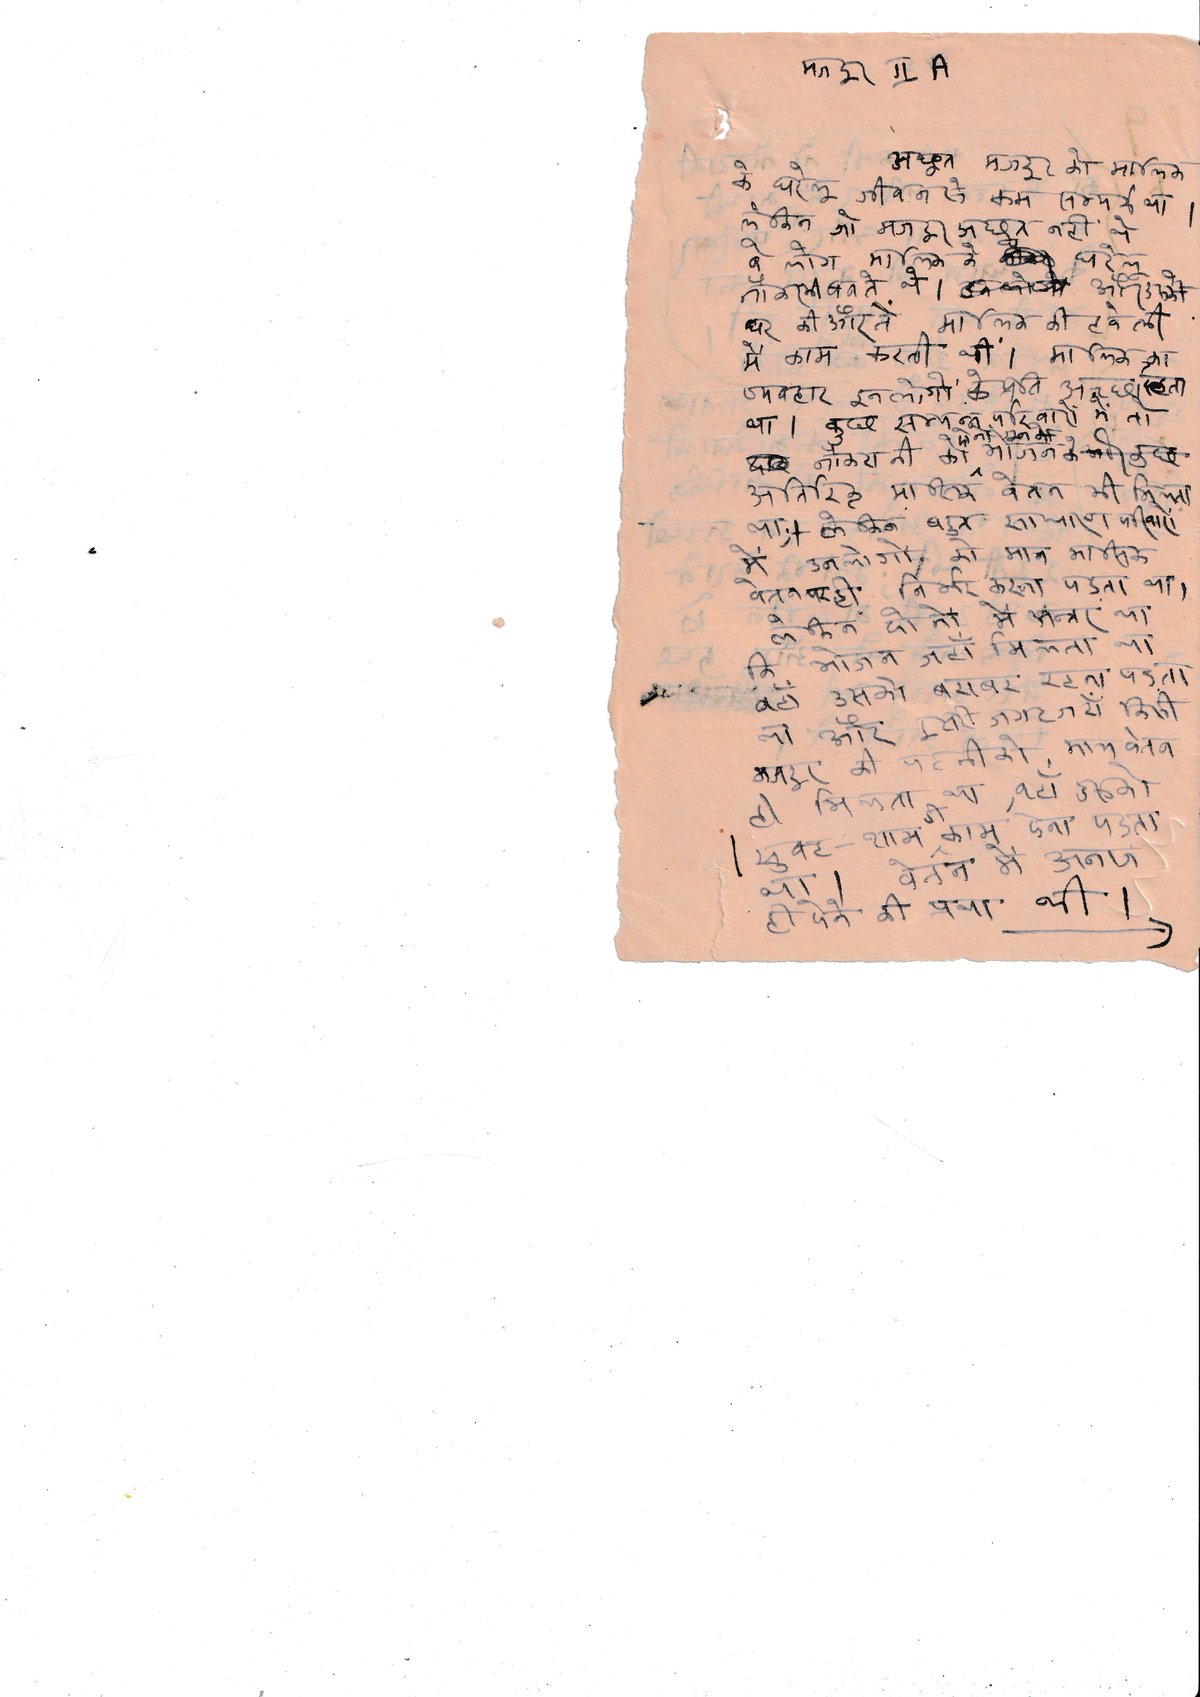 मजदूर II A
अछूत मजदूर को मालिक
के घरेलू जीवन से कम सम्पर्क था ।
लेकिन जो मजदूर अछूत नहीं थे
वे लोग मालिक के घरेलू
नौकर भी बनते थे । और उनकी
घर की औरतें मालिक की हवेली
में काम करती थीं । मालिक का
व्यवहार इन लोगों के प्रति अच्छा रहता
था । कुछ सम्पन्न परिवारों में तो
नौकरानी को भोजन के
अतिरिक्त मासिक वेतन भी मिलता
था, लेकिन बहुत साधारण परिवारों
में उनलोगों को मात्र मासिक
वेतन पर ही निर्भर करना पड़ता था ।
लेकिन दोनों में अन्तर था
कि भोजन जहाँ मिलता था
वहाँ उसको बराबर रहना पड़ता
था और दूसरी जगह जहाँ किसी
मजदूर की पत्नी को, मात्र वेतन
ही मिलता था, वहाँ उसको
सुबह-शाम ही काम देना पड़ता
था । वेतन में अनाज
ही देने की प्रथा थी ।